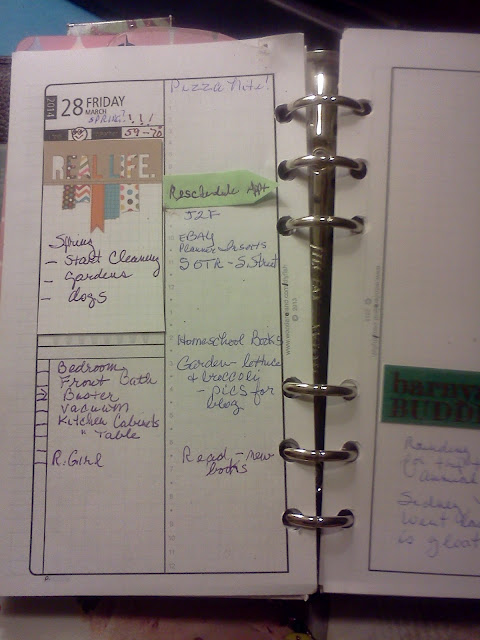 2014
28 FRIDAY
MARCH
SPRING!!!!
59-70
REAL LIFE.
Spring
- Start Cleaning
- Gardens
- dogs
Bedroom
Front Bath
Buster
Vacuum
Kitchen Cabinets
" Table
R. Girl
Pizza Nite!
Reschedule Appt.
J2F
EBAY
Planner Inserts
SOTR - S. Street
Homeschool Books
Garden - lettuce
& broccoly
- pics for
blog
Read - new
books
BUDD
annual
Sidney
went
is great